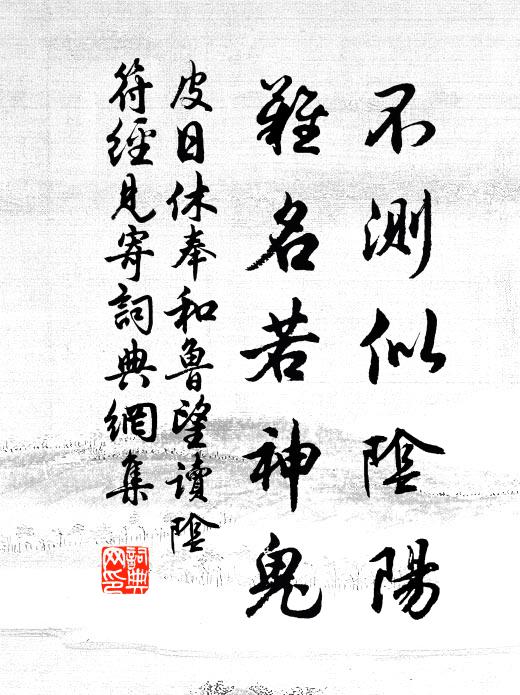 不測似陰陽
難名若神鬼
皮日休奉和魯望讀陰
符經見寄詞典網集
詞典网印